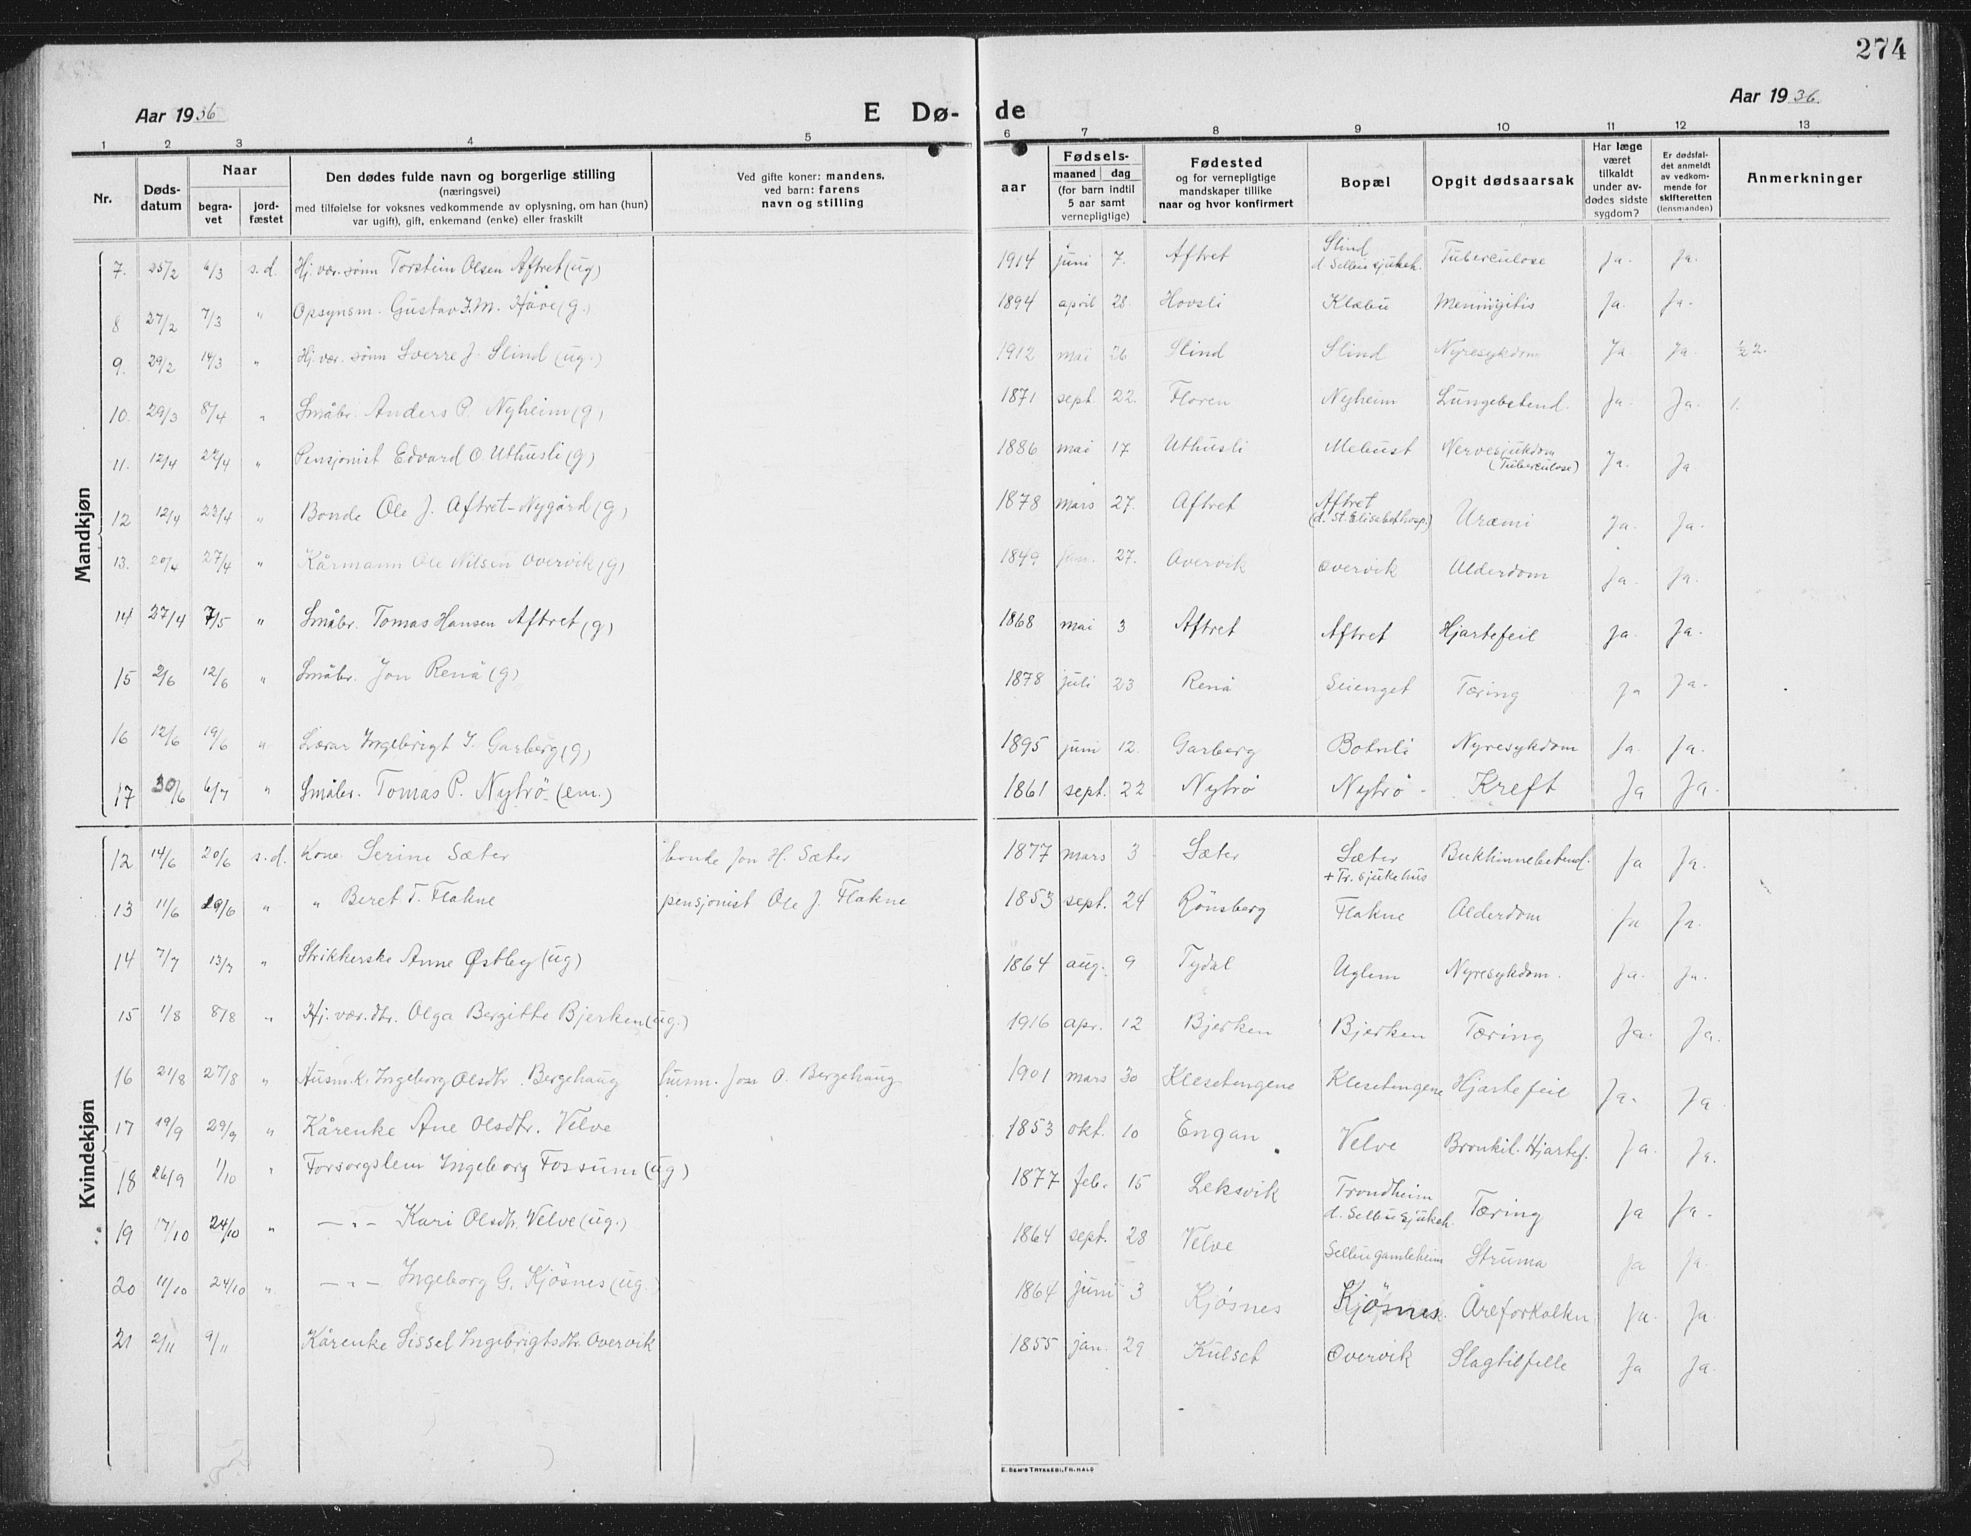 274
Aar 1936 E Dø- de Aar 1936.
1 2 3 4 5 6 7 8 9 10 11 12 13
Nr. Dødsdatum Naar begravet jordfæstet Den dødes fulde navn og borgerlige stilling (næringsvei) med tilføielse for voksnes vedkommende av oplysning, om han (hun) var ugift), gift, enkemand (enke) eller fraskilt Ved gifte koner: mandens, ved barn: farens navn og stilling aar Fødsels- maaned dag (for barn indtil 5 aar samt vernepligtige) Fødested og for vernepligtige mandskaper tillike naar og hvor konfirmert Bopæl Opgit dødsaarsak Har læge været tilkaldt under avdødes sidste sygdom? Er dødsfaldet anmeldt av vedkommende for skifteretten (lensmanden) Anmerkninger
Mandkjøn
7. 25/2 6/3 s.d. Hj. vær. sønn Torstein Olsen Aftret (ug) 1914 juni 7. Aftret Slind d. Selbu sjukeh. Tuberculose Ja. Ja.
8 27/2 7/3 " Opsynsm. Gustav J.M. Håve (g.) 1894 april 28. Hovsli Klæbu Meningitis Ja. Ja.
9. 29/2 14/3 " Hj. vær. sønn Sverre J. Slind (ug.) 1912 mai 26 Slind Slind Nyresykdom Ja Ja. ½ 2.
10. 29/3 8/4 " Småbr. Anders P. Nyheim (g) 1871 sept. 22. Floren Nyheim Lungebetend. Ja. Ja. 1.
11. 12/4 22/4 " Pensjonist Edvard O. Uthusli (g) 1886 mai 17 Uthusli Mebust Nervesjukdom (Tuberculose) Ja. Ja
12 12/4 23/4 " Bonde Ole J. Aftret-Nygård (g) 1878 mars 27. Aftret Aftret (d. St. Elisabethosp.) Uræmi Ja. Ja.
13. 20/4 27/4 " Kårmann Ole Nilsen Overvik (g) 1849 jan. 27. Overvik Overvik Alderdom Ja. Ja.
14 27/4 7/5 " Småbr. Tomas Hansen Aftret (g) 1868 mai 3 Aftret Aftret Hjartefeil Ja. Ja.
15 2/6 12/6 " Småbr. Jon Renå (g) 1878 juli 23 Renå Seienget Tæring Ja Ja.
16 12/6 19/6 " Lærar Ingebrigt J. Garberg (g) 1895 juni 12. Garberg Botnli Nyresykdom Ja. Ja.
17 30/6 6/7 " Småbr. Tomas P. Nytrø (em.) 1861 sept. 22 Nytrø Nytrø Kreft Ja Ja.
Kvindekjøn
12 14/6 20/6 s.d. Kone Serine Sæter bonde Jon H. Sæter 1877 mars 3 Sæter Sæter + Tr. sjukehus Bukhinnebetend. Ja Ja.
13 11/6 19/6 " " Beret T. Flakne pensjonist Ole J. Flakne 1853 sept. 24 Rönsberg Flakne Alderdom Ja Ja.
14 7/7 13/7 " Strikkerske Anne Østby (ug) 1864 aug. 9 Tydal Uglem Nyresykdom. Ja. Ja.
15 1/8 8/8 " Hj. vær. dtr. Olga Bergitte Bjerken (ug.) 1916 apr. 12 Bjerken Bjerken Tæring Ja. Ja.
16 21/8 27/8 " Husm.k. Ingeborg Olsdtr. Bergehaug husm. Jon O. Bergehaug 1901 mars 30 Klesetengene Klesetengene Hjartefeil Ja. Ja.
17 19/9 29/9 " Kårenke Ane Olsdtr. Velve 1853 okt. 10 Engan Velve Bronkit. Hjartef. Ja. Ja.
18 26/9 1/10 " Forsorgslem Ingeborg Fossum (ug) 1877 feb. 15 Leksvik Trondheim d. Selbu sjukeh. Tæring Ja Ja.
19 17/10 24/10 " — " — Kari Olsdtr. Velve (ug.) 1864 sept. 28 Velve Selbu gamleheim Struma Ja Ja.
20 11/10 24/10 " — " — Ingeborg G. Kjøsnes (ug.) 1864 juni 3 Kjøsnes Kjøsnes Åreforkalkn. Ja. Ja
21 2/11 9/11 Kårenke Sissel Ingebrigtsdtr. Overvik 1855 jan. 29 Kulset Overvik Slagtilfelle Ja Ja.
E. SEM'S TRYKKERI, FR.HALD